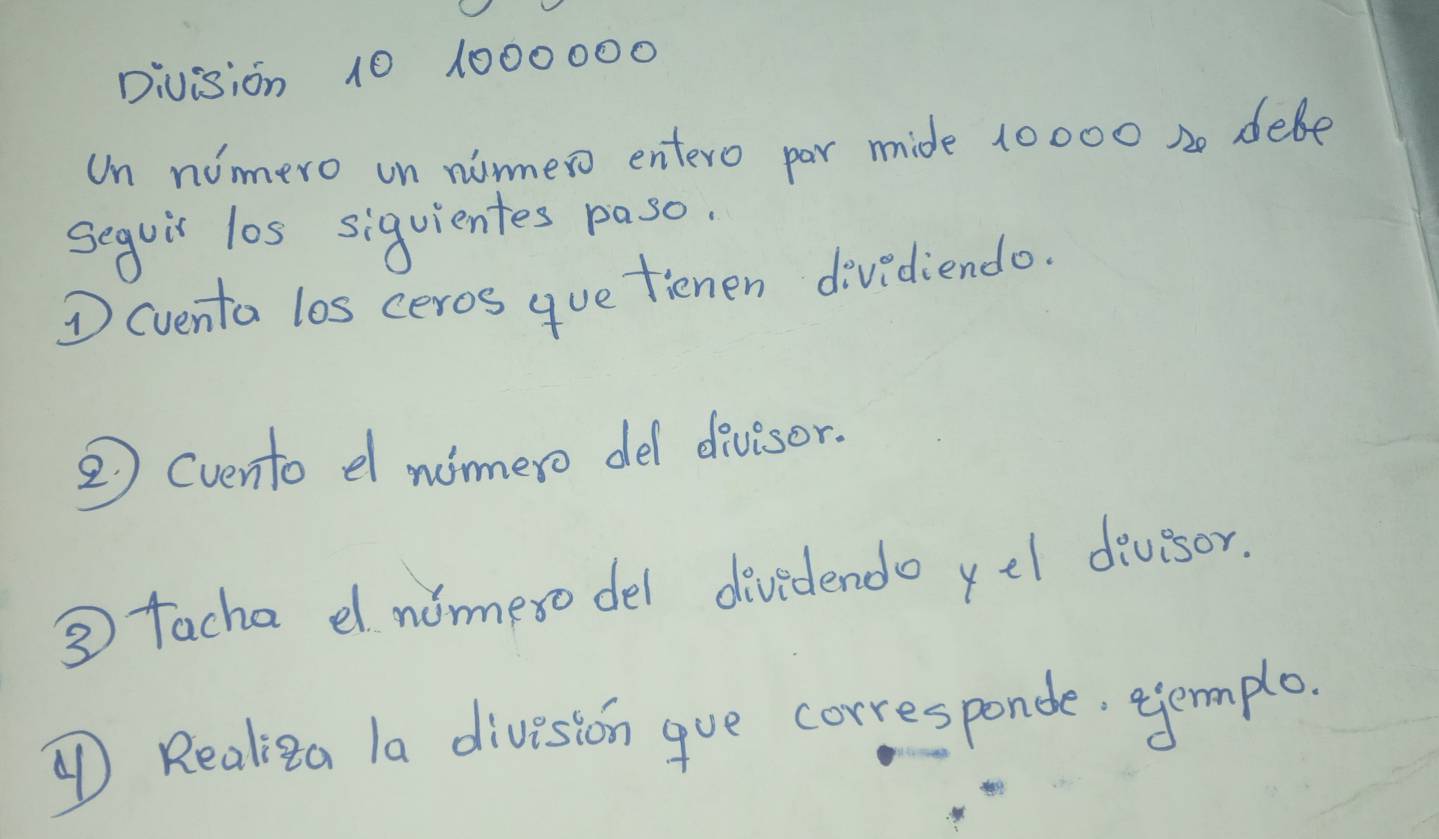 División 10 1000000
Un número un número entero por mide 10000 se debe
seguir los siguientes paso.
① Cuenta los ceros que tienen dividiendo.
② Cuento el número del divisor.
③ Tacha el número del dividendo y el divisor.
④ Realiza la división que corresponde. ejemplo.